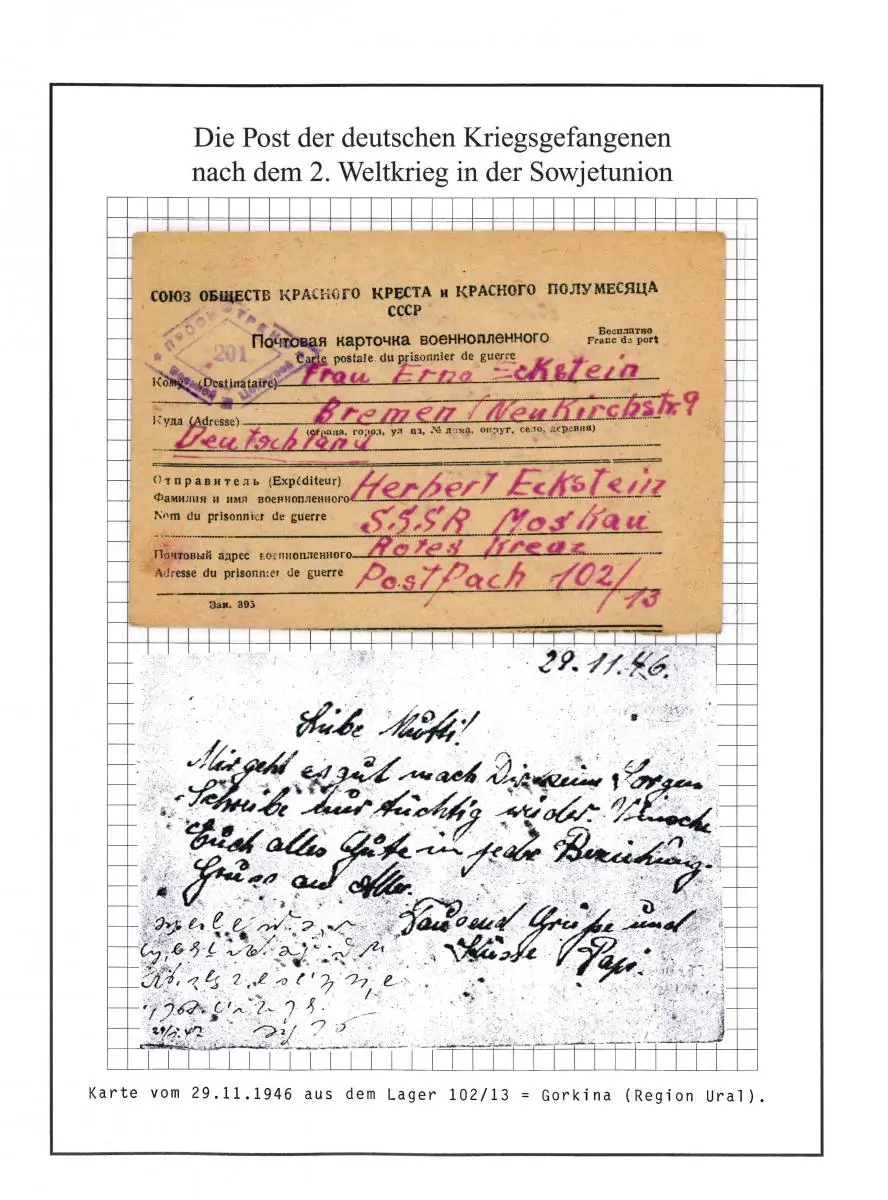 Die Post der deutschen Kriegsgefangenen
nach dem 2. Weltkrieg in der Sowjetunion
СОЮЗ ОБЩЕСТВ КРАСНОГО КРЕСТА и КРАСНОГО ПОЛУМЕСЯЦА
СССР
Почтовая карточка военнопленного
Carte postale du prisonnier de guerre
Бесплатно
Franc de port
ПРОСМОТРЕНО
201
Военной Цензурой
Кому (Destinataire) Frau Erna Eckstein
Куда (Adresse) Bremen / Neukirchstr. 9
(страна, город, ул ца, № дома, округ, село, деревня)
Deutschland
Отправитель (Expéditeur)
Фамилия и имя военнопленного Herbert Eckstein
Nom du prisonnier de guerre S.S.S.R Moskau
Почтовый адрес военнопленного Rotes Kreuz
Adresse du prisonnier de guerre Postfach 102/
13
Зак. 395
29.11.46.
Liebe Mutti!
Mir geht es gut mach Dir keine Sorgen
Schreibe nur tüchtig wieder. Wünsche
Euch alles Gute in jeder Beziehung.
Gruss an Alle.
Tausend Grüße und
Küsse Papi.
Karte vom 29.11.1946 aus dem Lager 102/13 = Gorkina (Region Ural).